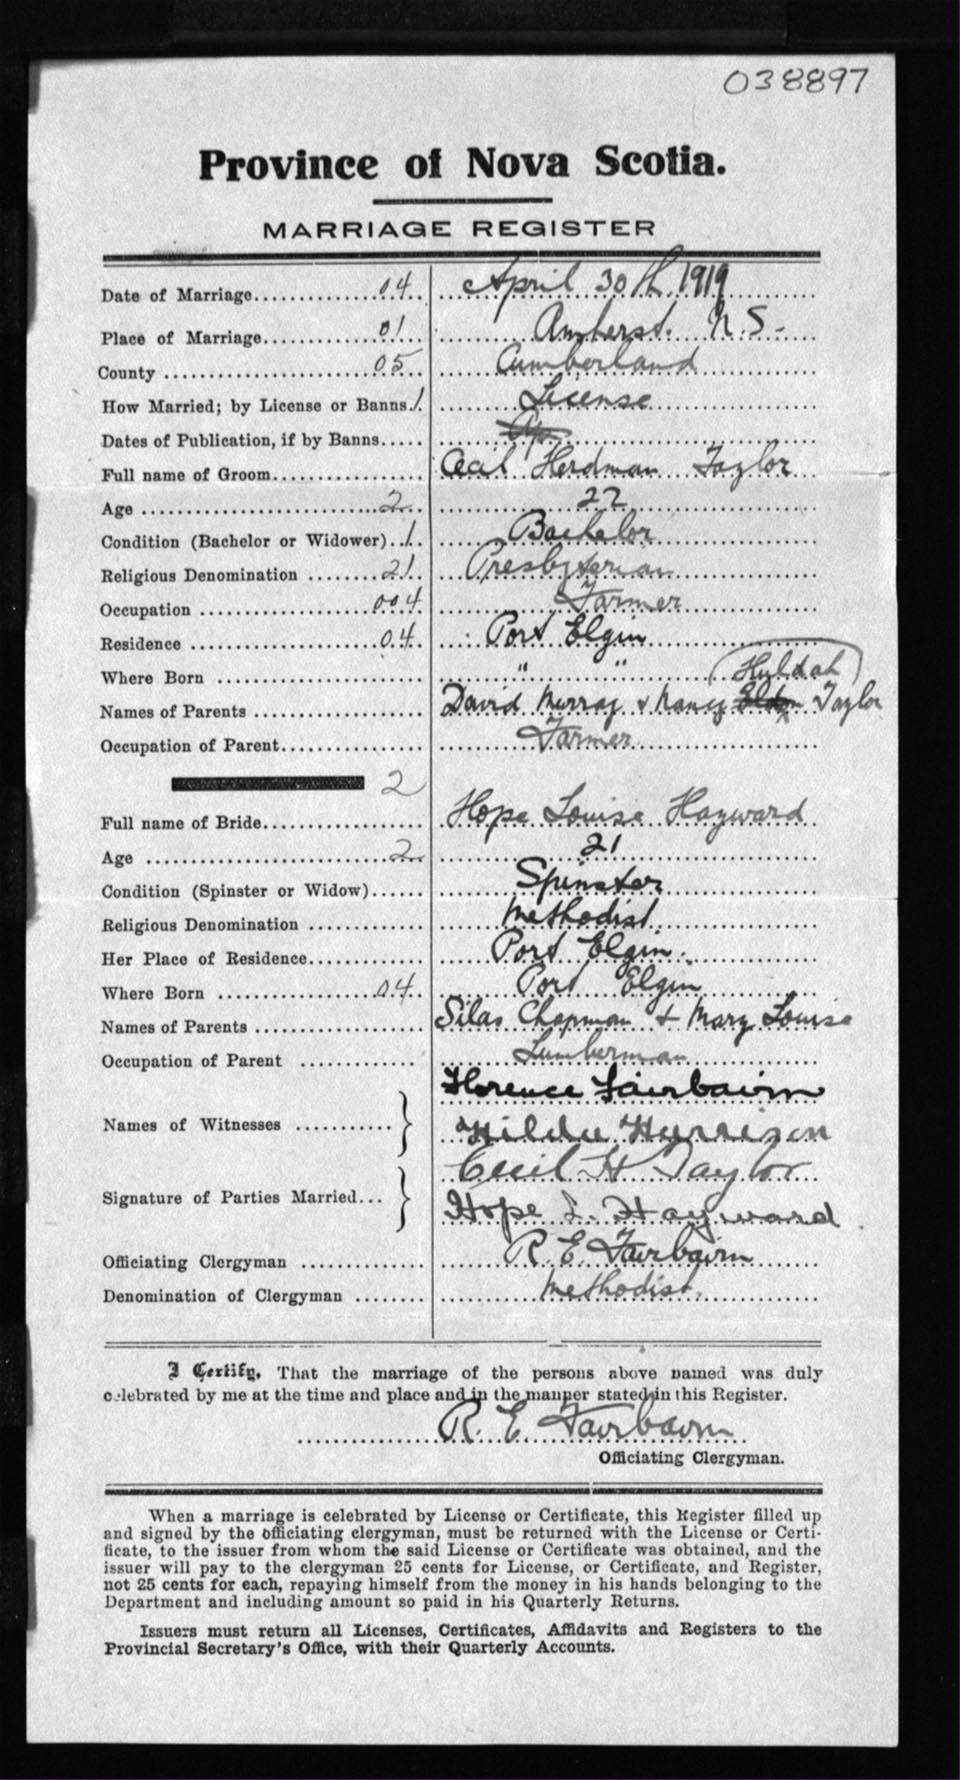 038897
Province of Nova Scotia.
MARRIAGE REGISTER
Date of Marriage 04 April 30th 1919
Place of Marriage 01 Amherst. N.S.
County 05 Cumberland
How Married; by License or Banns 1 License
Dates of Publication, if by Banns Ap
Full name of Groom Cecil Herdman Taylor
Age 2 22
Condition (Bachelor or Widower) 1 Bachelor
Religious Denomination 21 Presbyterian
Occupation 004 Farmer
Residence 04 Port Elgin
Where Born " " Huldah
Names of Parents David Murray & Nancy Taylor
Occupation of Parent Farmer
2
Full name of Bride Hope Louise Hayward
Age 2 21
Condition (Spinster or Widow) Spinster
Religious Denomination Methodist
Her Place of Residence Port Elgin.
Where Born 04 Port Elgin
Names of Parents Silas Chapman & Mary Louise
Occupation of Parent Lumberman
Florence Fairbairn
Names of Witnesses Hilda Harrison
Cecil H Taylor
Signature of Parties Married... Hope L. Hayward
Officiating Clergyman R. E. Fairbairn
Denomination of Clergyman Methodist.
I Certify, That the marriage of the persons above named was duly
celebrated by me at the time and place and in the manner stated in this Register.
R. E. Fairbairn
Officiating Clergyman.
When a marriage is celebrated by License or Certificate, this Register filled up
and signed by the officiating clergyman, must be returned with the License or Certi-
ficate, to the issuer from whom the said License or Certificate was obtained, and the
issuer will pay to the clergyman 25 cents for License, or Certificate, and Register,
not 25 cents for each, repaying himself from the money in his hands belonging to the
Department and including amount so paid in his Quarterly Returns.
Issuers must return all Licenses, Certificates, Affidavits and Registers to the
Provincial Secretary's Office, with their Quarterly Accounts.